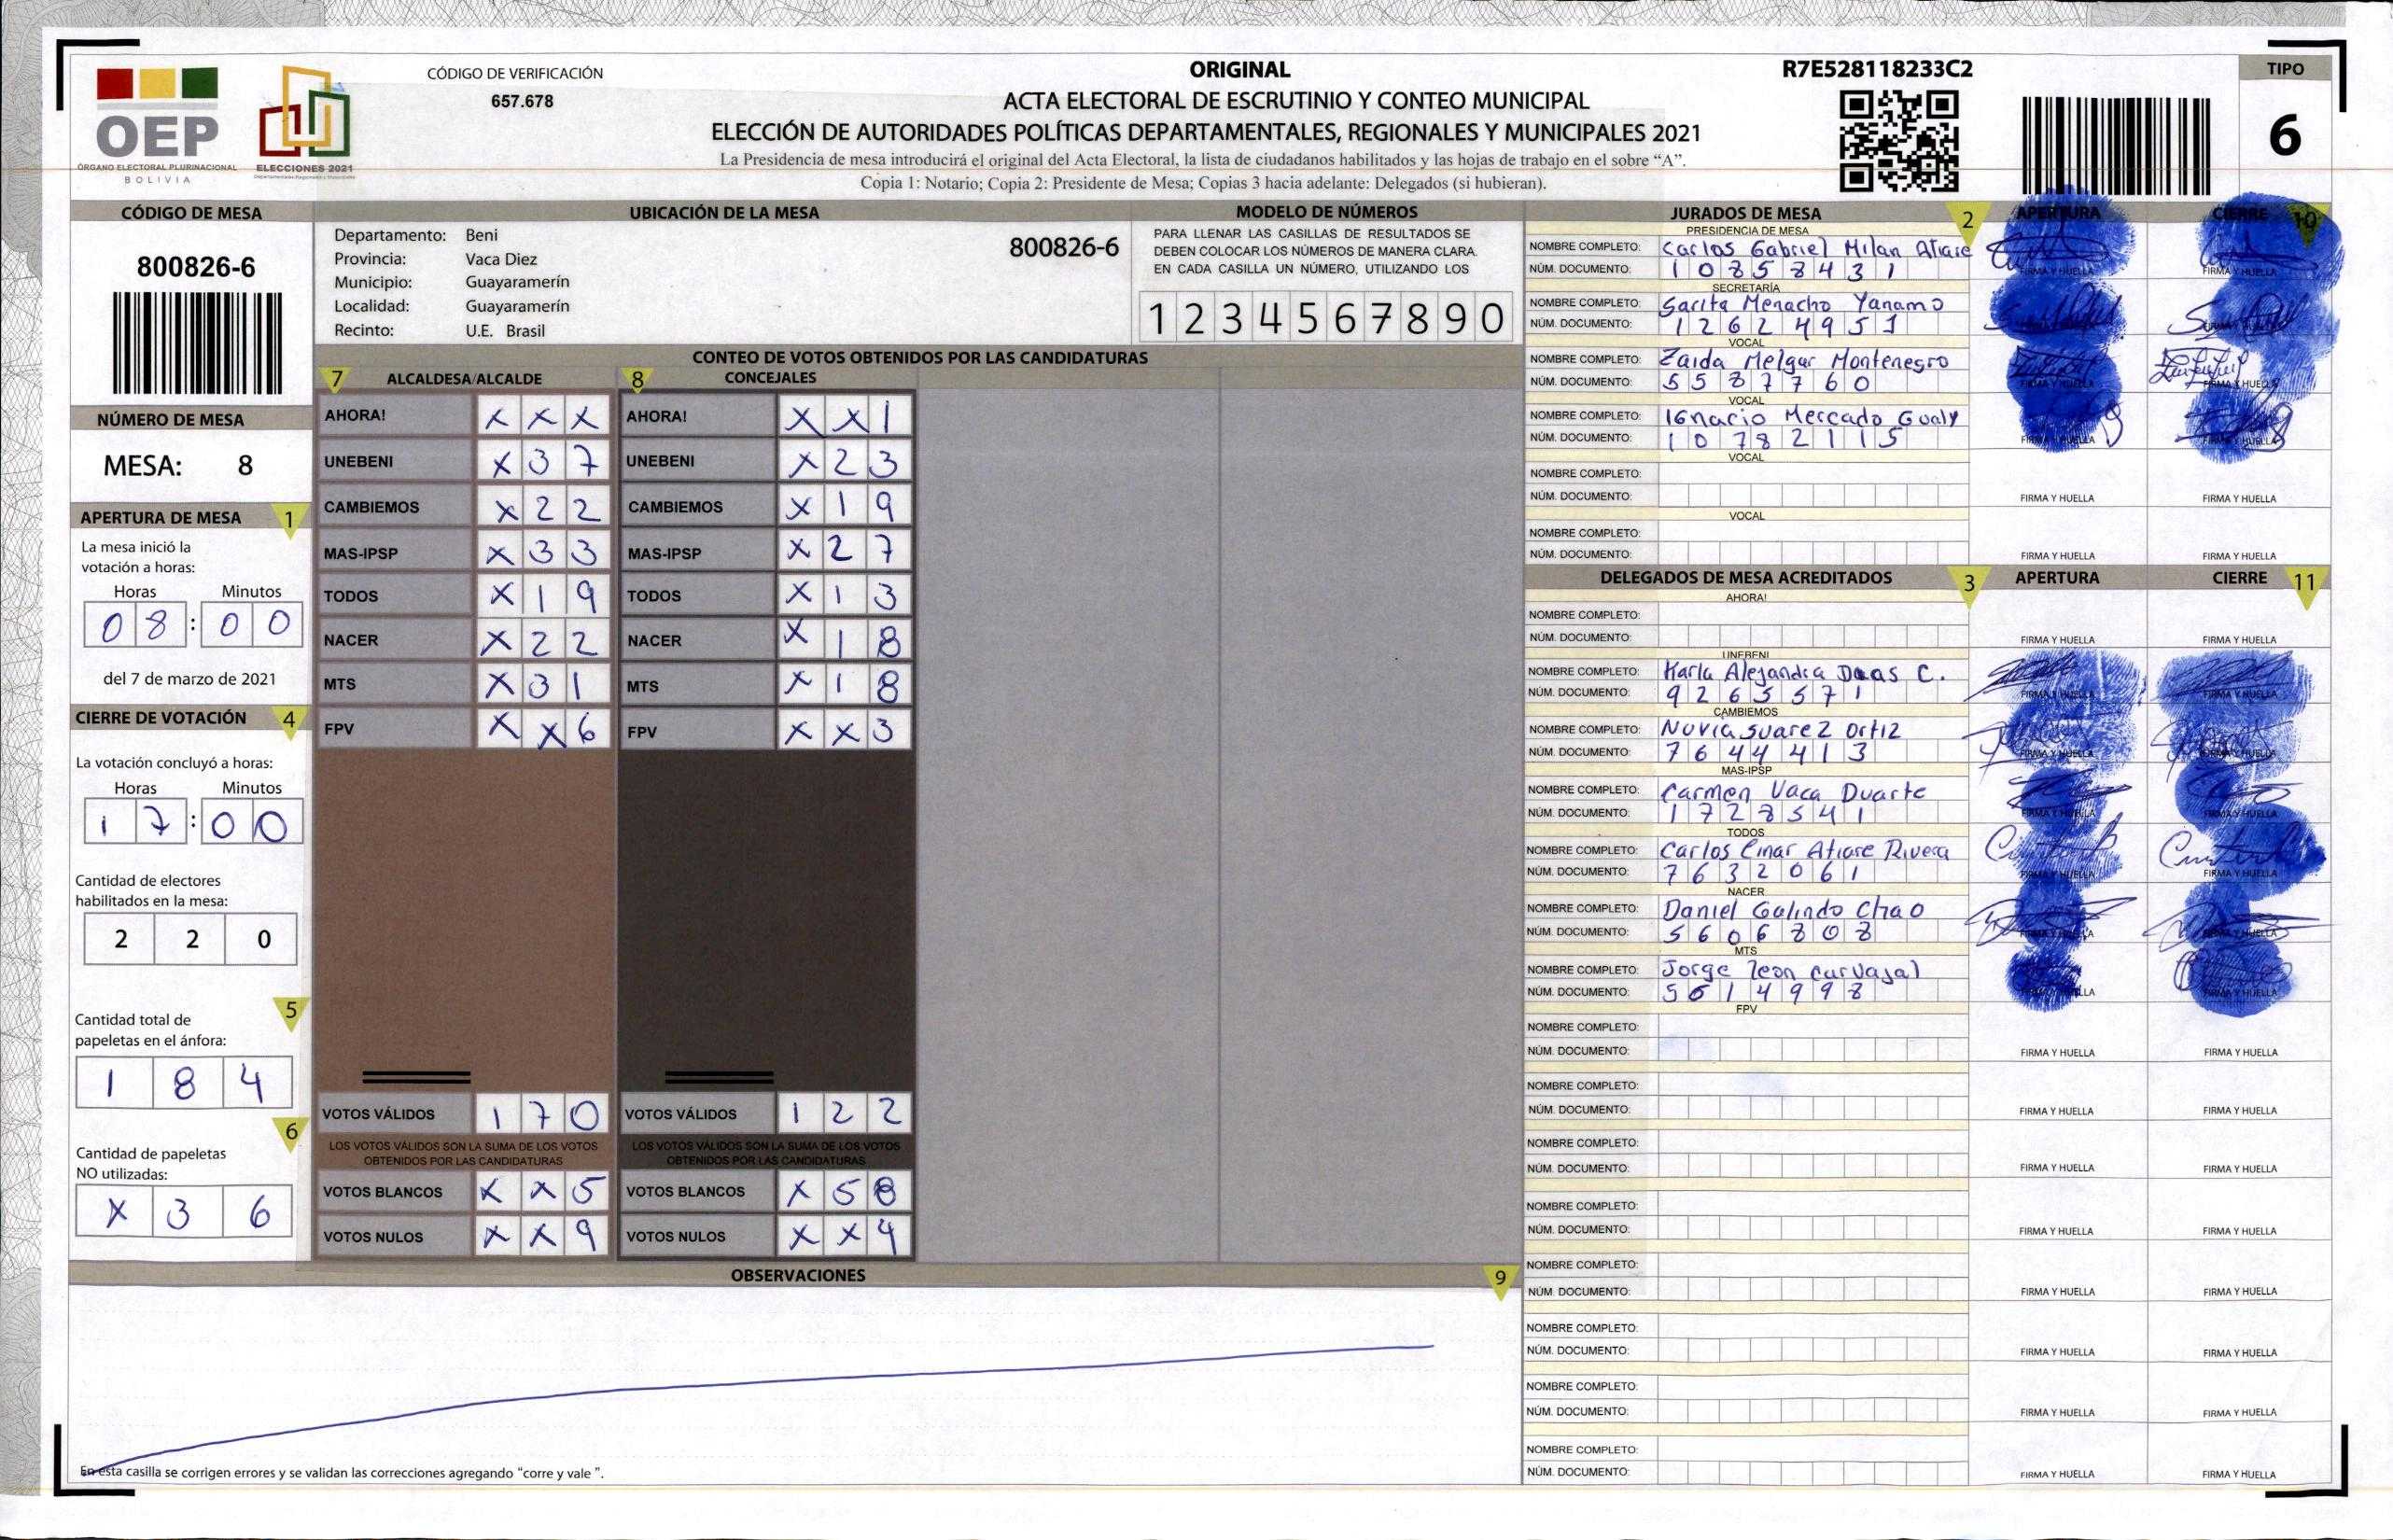 OEP
ÓRGANO ELECTORAL PLURINACIONAL
BOLIVIA
ELECCIONES 2021
CÓDIGO DE VERIFICACIÓN
657.678
ORIGINAL
ACTA ELECTORAL DE ESCRUTINIO Y CONTEO MUNICIPAL
ELECCIÓN DE AUTORIDADES POLÍTICAS DEPARTAMENTALES, REGIONALES Y MUNICIPALES 2021
La Presidencia de mesa introducirá el original del Acta Electoral, la lista de ciudadanos habilitados y las hojas de trabajo en el sobre “A”.
Copia 1: Notario; Copia 2: Presidente de Mesa; Copias 3 hacia adelante: Delegados (si hubieran).
R7E528118233C2
TIPO
6
CÓDIGO DE MESA
800826-6
NÚMERO DE MESA
MESA: 8
APERTURA DE MESA 1
La mesa inició la
votación a horas:
Horas Minutos
0 8 : 0 0
del 7 de marzo de 2021
CIERRE DE VOTACIÓN 4
La votación concluyó a horas:
Horas Minutos
1 7 : 0 0
Cantidad de electores
habilitados en la mesa:
2 2 0
5
Cantidad total de
papeletas en el ánfora:
1 8 4
6
Cantidad de papeletas
NO utilizadas:
X 3 6
UBICACIÓN DE LA MESA
Departamento: Beni
Provincia: Vaca Diez
Municipio: Guayaramerín
Localidad: Guayaramerín
Recinto: U.E. Brasil
800826-6
MODELO DE NÚMEROS
PARA LLENAR LAS CASILLAS DE RESULTADOS SE
DEBEN COLOCAR LOS NÚMEROS DE MANERA CLARA.
EN CADA CASILLA UN NÚMERO, UTILIZANDO LOS
1 2 3 4 5 6 7 8 9 0
CONTEO DE VOTOS OBTENIDOS POR LAS CANDIDATURAS
7 ALCALDESA/ALCALDE 8 CONCEJALES
AHORA! X X X AHORA! X X 1
UNEBENI X 3 7 UNEBENI X 2 3
CAMBIEMOS X 2 2 CAMBIEMOS X 1 9
MAS-IPSP X 3 3 MAS-IPSP X 2 7
TODOS X 1 9 TODOS X 1 3
NACER X 2 2 NACER X 1 8
MTS X 3 1 MTS X 1 8
FPV X X 6 FPV X X 3
VOTOS VÁLIDOS 1 7 0 VOTOS VÁLIDOS 1 2 2
LOS VOTOS VÁLIDOS SON LA SUMA DE LOS VOTOS LOS VOTOS VÁLIDOS SON LA SUMA DE LOS VOTOS
OBTENIDOS POR LAS CANDIDATURAS OBTENIDOS POR LAS CANDIDATURAS
VOTOS BLANCOS X X 5 VOTOS BLANCOS X 5 8
VOTOS NULOS X X 9 VOTOS NULOS X X 4
OBSERVACIONES 9
En esta casilla se corrigen errores y se validan las correcciones agregando “corre y vale ”.
JURADOS DE MESA 2 APERTURA CIERRE 10
PRESIDENCIA DE MESA
NOMBRE COMPLETO: Carlos Gabriel Milan Atiare
NÚM. DOCUMENTO: 1 0 8 5 8 4 3 1 FIRMA Y HUELLA FIRMA Y HUELLA
SECRETARÍA
NOMBRE COMPLETO: Sarita Menacho Yanamo
NÚM. DOCUMENTO: 1 2 6 2 4 9 5 1
VOCAL
NOMBRE COMPLETO: Zaida Melgar Montenegro
NÚM. DOCUMENTO: 5 5 8 7 7 6 0 FIRMA Y HUELLA FIRMA Y HUELLA
VOCAL
NOMBRE COMPLETO: IGnacio Mercado Gualy
NÚM. DOCUMENTO: 1 0 7 8 2 1 1 5 FIRMA Y HUELLA FIRMA Y HUELLA
VOCAL
NOMBRE COMPLETO:
NÚM. DOCUMENTO: FIRMA Y HUELLA FIRMA Y HUELLA
VOCAL
NOMBRE COMPLETO:
NÚM. DOCUMENTO: FIRMA Y HUELLA FIRMA Y HUELLA
DELEGADOS DE MESA ACREDITADOS 3 APERTURA CIERRE 11
AHORA!
NOMBRE COMPLETO:
NÚM. DOCUMENTO: FIRMA Y HUELLA FIRMA Y HUELLA
UNEBENI
NOMBRE COMPLETO: Karla Alejandra C.
NÚM. DOCUMENTO: 9 2 6 5 5 7 1 FIRMA Y HUELLA FIRMA Y HUELLA
CAMBIEMOS
NOMBRE COMPLETO: Nuvia Suarez Ortiz
NÚM. DOCUMENTO: 7 6 4 4 4 1 3 FIRMA Y HUELLA FIRMA Y HUELLA
MAS-IPSP
NOMBRE COMPLETO: Carmen Vaca Duarte
NÚM. DOCUMENTO: 1 7 2 8 5 4 1 FIRMA Y HUELLA FIRMA Y HUELLA
TODOS
NOMBRE COMPLETO: Carlos Einar Atiare Rivera
NÚM. DOCUMENTO: 7 6 3 2 0 6 1 FIRMA Y HUELLA FIRMA Y HUELLA
NACER
NOMBRE COMPLETO: Daniel Galindo Chao
NÚM. DOCUMENTO: 5 6 0 6 8 0 8 FIRMA Y HUELLA FIRMA Y HUELLA
MTS
NOMBRE COMPLETO: Jorge leon carvajal
NÚM. DOCUMENTO: 5 6 1 4 9 9 8 FIRMA Y HUELLA FIRMA Y HUELLA
FPV
NOMBRE COMPLETO:
NÚM. DOCUMENTO: FIRMA Y HUELLA FIRMA Y HUELLA
NOMBRE COMPLETO:
NÚM. DOCUMENTO: FIRMA Y HUELLA FIRMA Y HUELLA
NOMBRE COMPLETO:
NÚM. DOCUMENTO: FIRMA Y HUELLA FIRMA Y HUELLA
NOMBRE COMPLETO:
NÚM. DOCUMENTO: FIRMA Y HUELLA FIRMA Y HUELLA
NOMBRE COMPLETO:
NÚM. DOCUMENTO: FIRMA Y HUELLA FIRMA Y HUELLA
NOMBRE COMPLETO:
NÚM. DOCUMENTO: FIRMA Y HUELLA FIRMA Y HUELLA
NOMBRE COMPLETO:
NÚM. DOCUMENTO: FIRMA Y HUELLA FIRMA Y HUELLA
NOMBRE COMPLETO:
NÚM. DOCUMENTO: FIRMA Y HUELLA FIRMA Y HUELLA